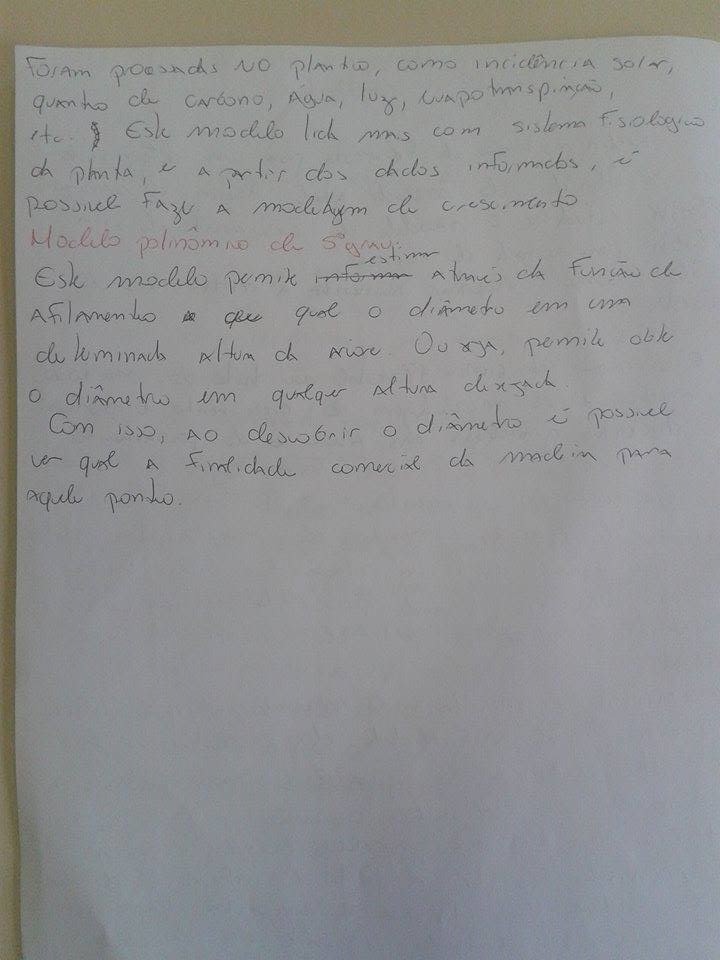 Foram processadas no plantio, como incidência solar,
quanto de carbono, água, luz, evapotranspiração,
etc. Este modelo lida mais com sistema fisiologico
da planta, e a partir dos dados informados, é
possivel fazer a modelagem de crescimento.
Modelo polinômio de 5º grau:
Este modelo permite informar estimar através da função de
afilamento que qual o diâmetro em uma
determinada altura da arvore. Ou seja, permite obter
o diâmetro em qualquer altura desejada.
Com isso, ao descobrir o diâmetro é possivel
ver qual a finalidade comercial da madeira para
aquele ponto.